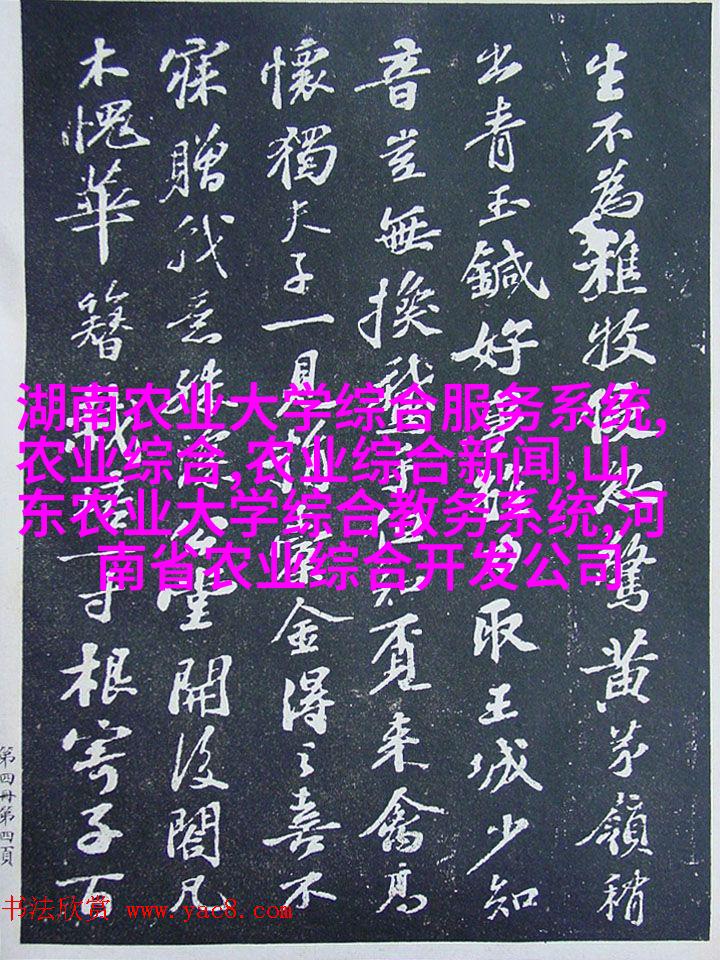 生不為牧驚黄茅嶺稍
出青玉鍼好取王城少知
音豈無換來禽高
懷獨夫子一見金得之喜不
寐贈我意殊堂開後閤凡
木愧華簪根寄子百
第四冊第四頁
湖南农业大学综合服务系统,
农业综合,农业综合新闻,山
东农业大学综合教务系统,河
南省农业综合开发公司
书法欣赏 www.yac8.com